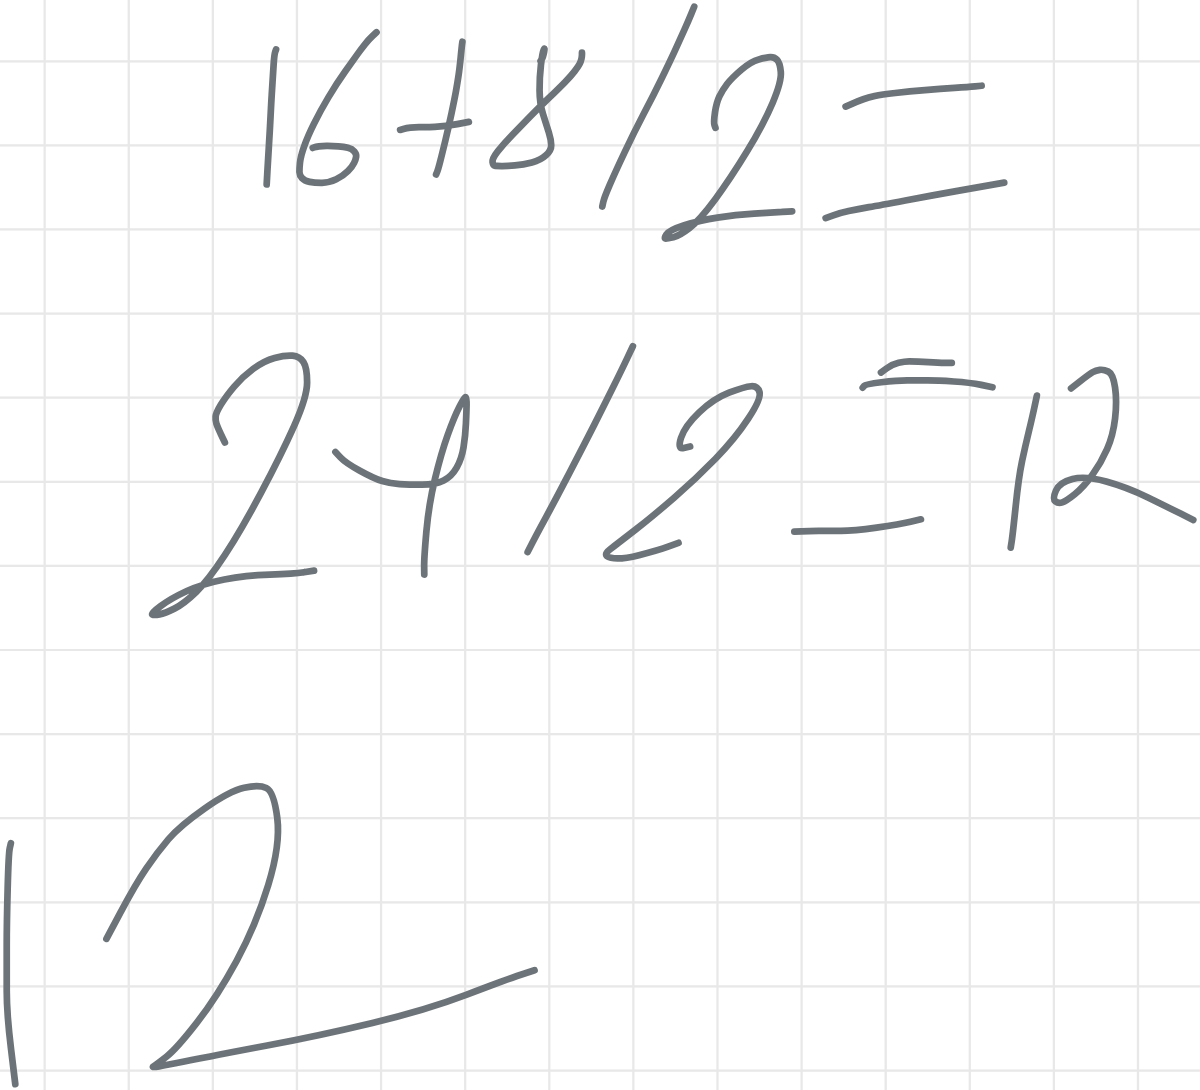 16+8/2=
24/2=12
12